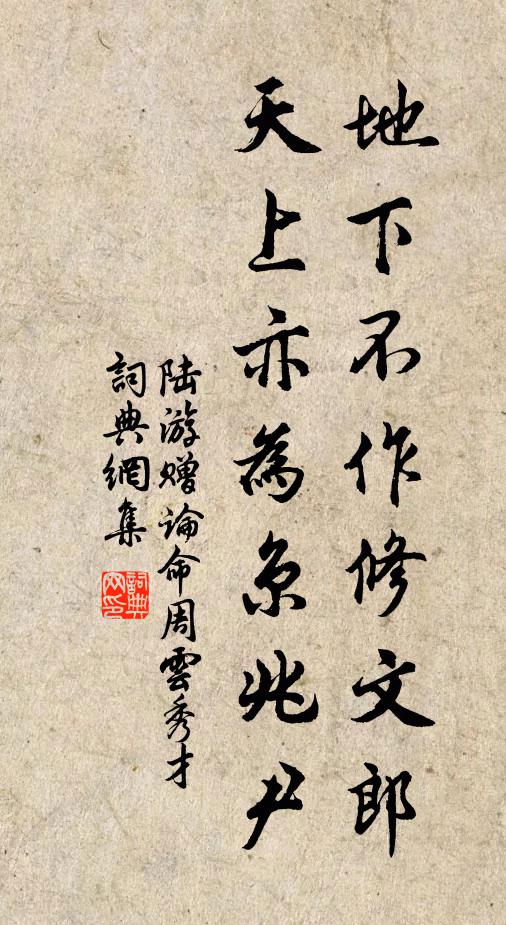 地下不作修文郎
天上亦為京兆尹
陆游赠論命周雲秀才
詞典網集
詞典网印